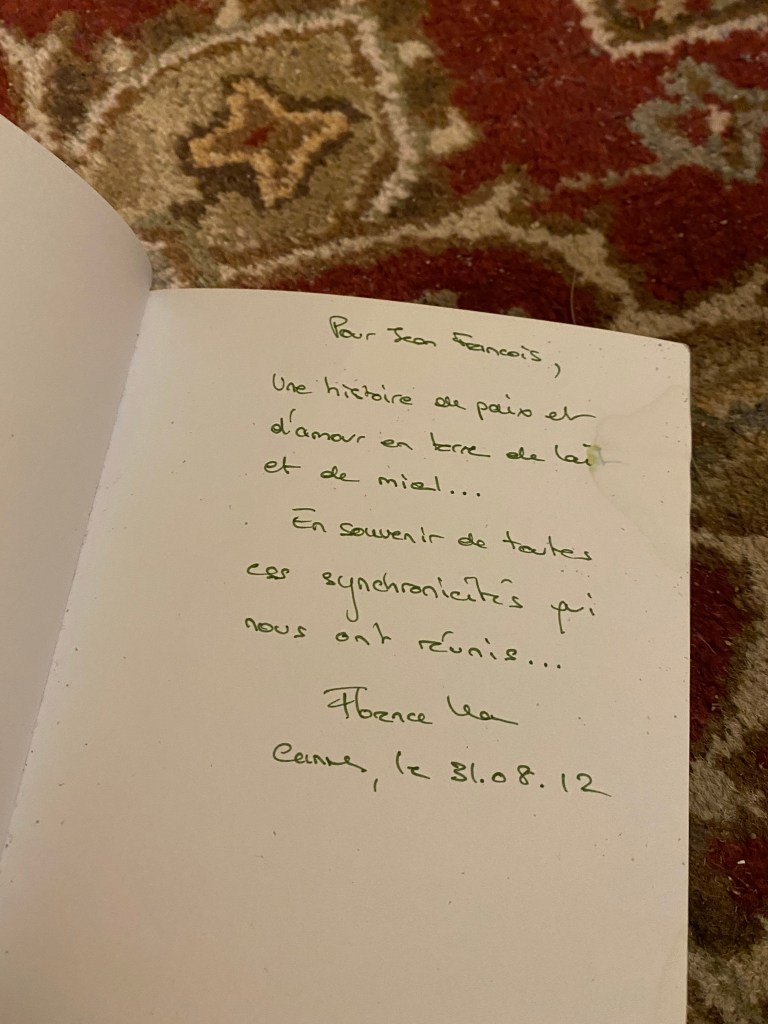 Pour Jean François,
Une histoire de paix et
d'amour en terre de lait
et de miel...
En souvenir de toutes
ces synchronicités qui
nous ont réunis...
Florence
Cannes, le 31.08.12